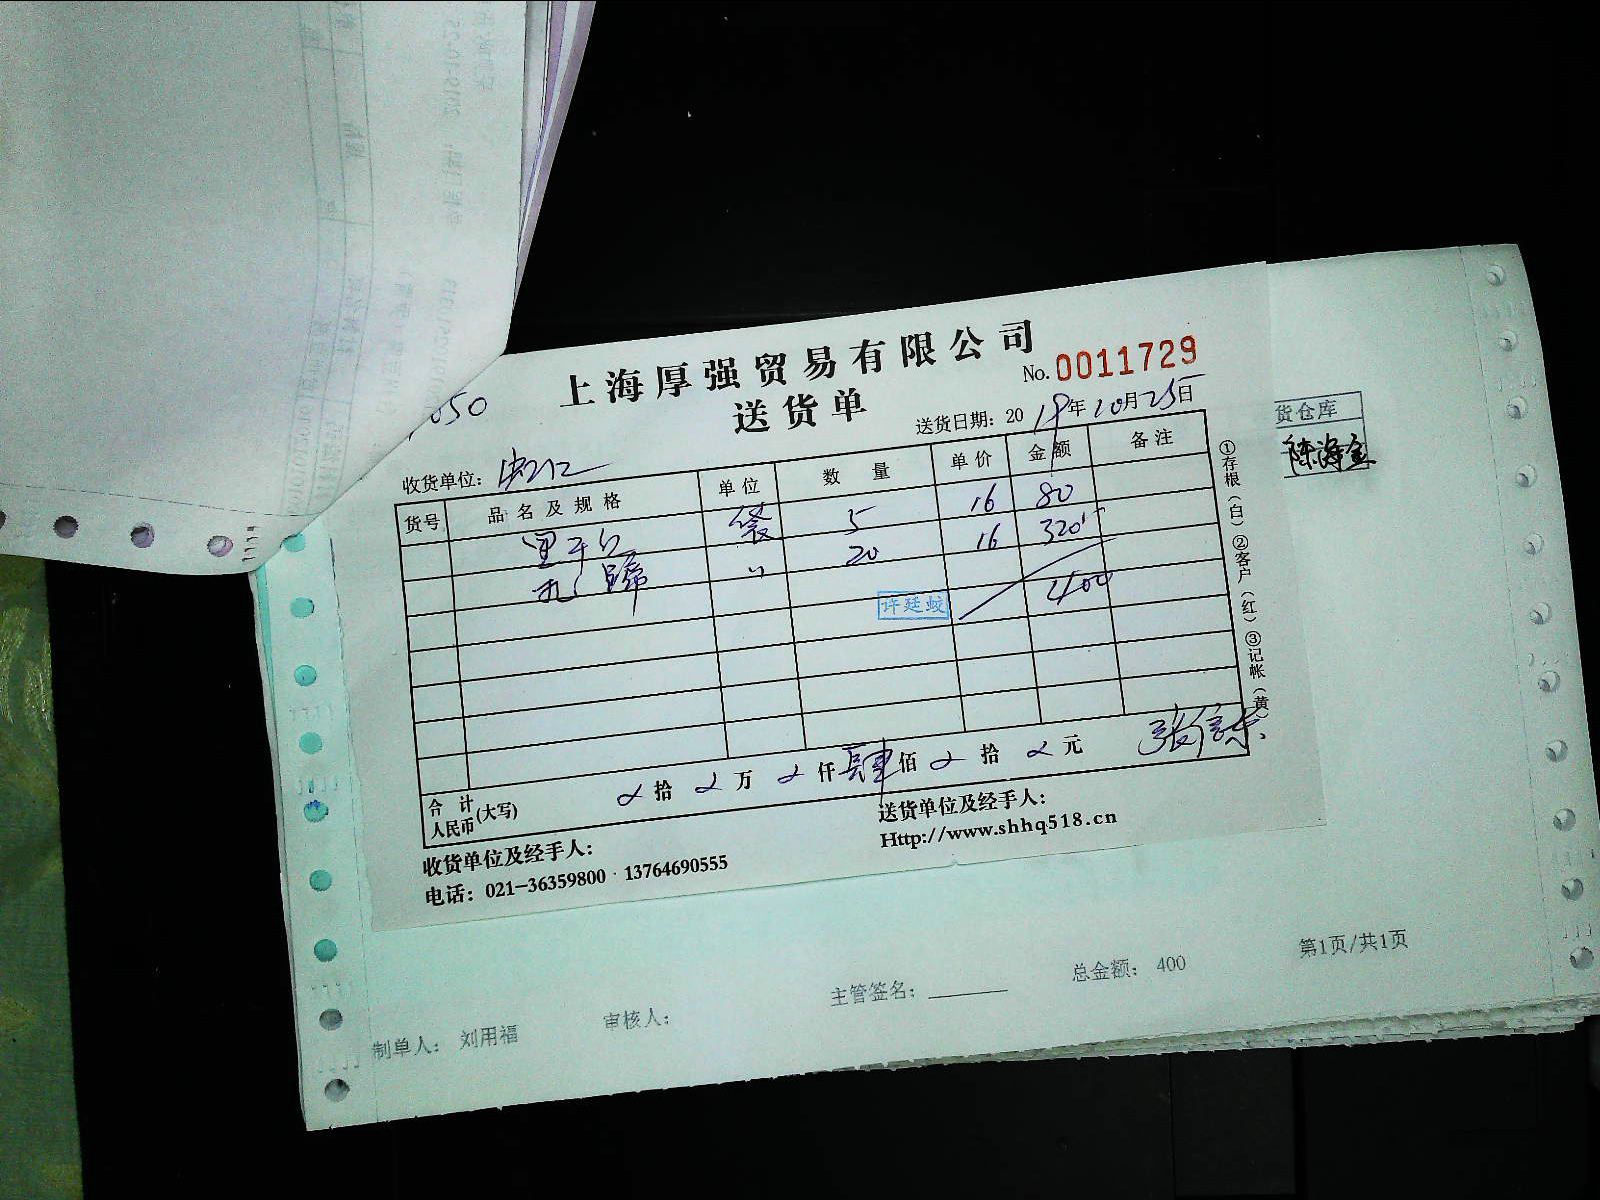 上海厚强贸易有限公司
送货单
No. 0011729
送货日期：2019年10月25日
收货单位：
货号 品名及规格 单位 数量 单价 金额 备注
袋 5 16 80
〃 20 16 320
400
许廷蛟
合计人民币(大写) 拾 万 仟 肆佰 拾 元
张信杰
收货单位及经手人：
送货单位及经手人：
电话：021-36359800 13764690555
Http://www.shhq518.cn
①存根（白）②客户（红）③记帐（黄）
货仓库
陈海金
制单人： 刘用福 审核人： 主管签名： 总金额： 400 第1页/共1页